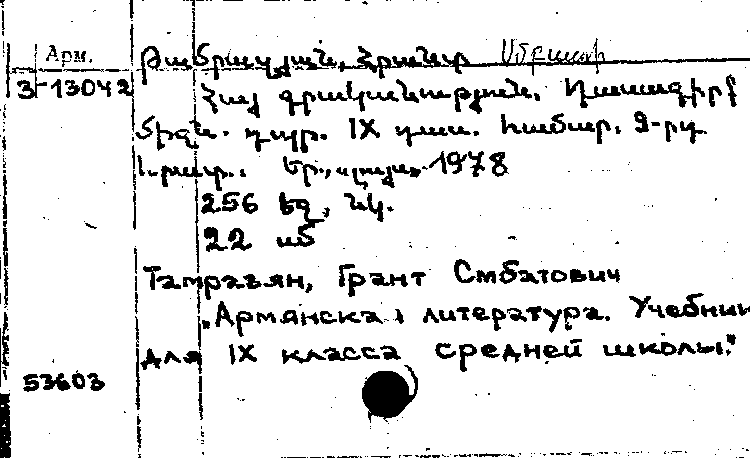 Арм. Թամրազյան, Հրանտ Սմբատի
3-13042 Հայ գրականություն. Դասագիրք
միջն. դպր. IX դաս. համար. 9-րդ
հրատ.. Եր., «Լույս» 1978
256 եջ, նկ.
22 սմ
Тамразян, Грант Смбатович
„Армянская литература. Учебник
для IX класса средней школы."
53603